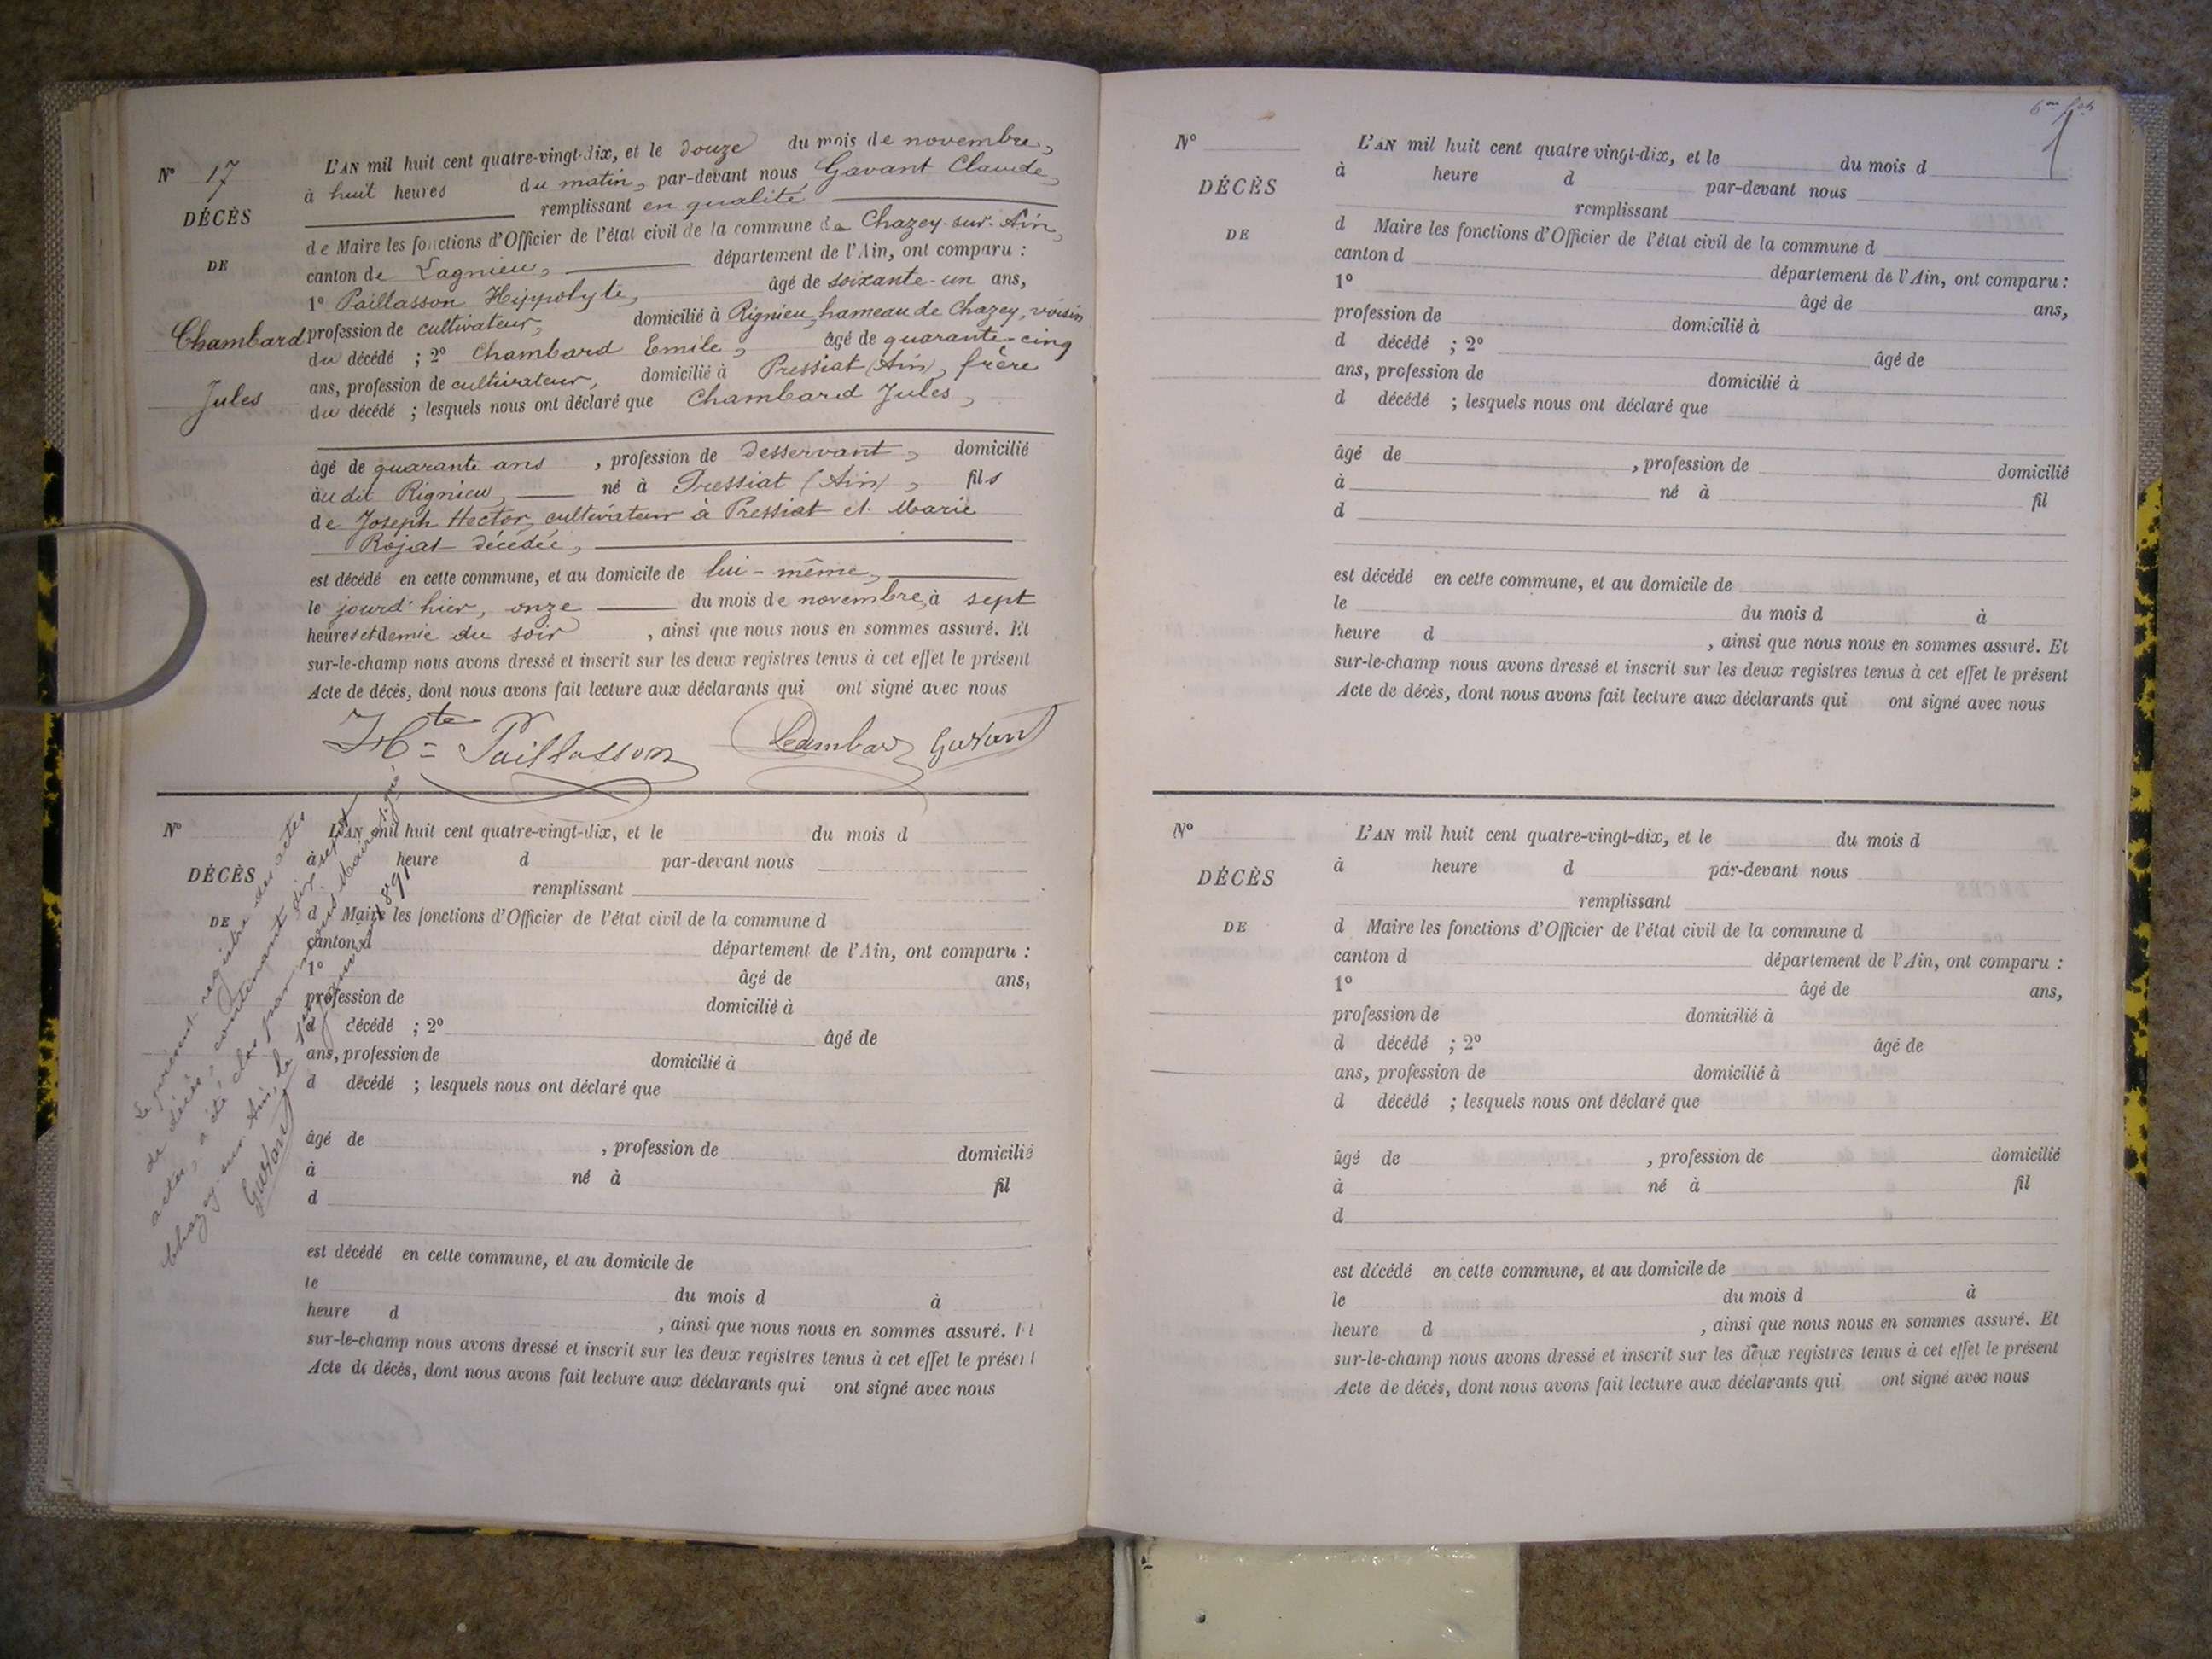 N° 17
DÉCÈS
DE
Chambard
Jules
L'AN mil huit cent quatre-vingt-dix, et le douze du mois de novembre,
à huit heures du matin, par-devant nous Gavant Claude,
remplissant en qualité
de Maire les fonctions d'Officier de l'état civil de la commune de Chazey-sur-Ain,
canton de Lagnieu, département de l'Ain, ont comparu :
1° Paillasson Hippolyte, âgé de soixante-un ans,
profession de cultivateur, domicilié à Rignieu, hameau de Chazey, voisin
du décédé ; 2° Chambard Emile, âgé de quarante-cinq
ans, profession de cultivateur, domicilié à Pressiat (Ain), frère
du décédé ; lesquels nous ont déclaré que Chambard Jules,
âgé de quarante ans , profession de desservant, domicilié
audit Rignieu, né à Pressiat (Ain), fils
de Joseph Hector, cultivateur à Pressiat et Marie
Rojat décédée,
est décédé en cette commune, et au domicile de lui-même,
le jourd'hier, onze du mois de novembre, à sept
heures et demie du soir , ainsi que nous nous en sommes assuré. Et
sur-le-champ nous avons dressé et inscrit sur les deux registres tenus à cet effet le présent
Acte de décès, dont nous avons fait lecture aux déclarants qui ont signé avec nous
Hte Paillasson Chambard Gavant
N°
DÉCÈS
DE
L'AN mil huit cent quatre-vingt-dix, et le du mois d
à heure d par-devant nous
remplissant
d Maire les fonctions d'Officier de l'état civil de la commune d
canton d département de l'Ain, ont comparu :
1° âgé de ans,
profession de domicilié à
d décédé ; 2° âgé de
ans, profession de domicilié à
d décédé ; lesquels nous ont déclaré que
âgé de , profession de domicilié
à né à fil
d
est décédé en cette commune, et au domicile de
le du mois d à
heure d , ainsi que nous nous en sommes assuré. Et
sur-le-champ nous avons dressé et inscrit sur les deux registres tenus à cet effet le présent
Acte de décès, dont nous avons fait lecture aux déclarants qui ont signé avec nous
Le présent registre des actes
de décès, contenant dix-sept
actes, a été clos par nous Maire signé
Chazey-sur-Ain, le 1er janvier 1891
Gavant
N°
DÉCÈS
DE
L'AN mil huit cent quatre vingt-dix, et le du mois d
à heure d par-devant nous
remplissant
d Maire les fonctions d'Officier de l'état civil de la commune d
canton d département de l'Ain, ont comparu :
1° âgé de ans,
profession de domicilié à
d décédé ; 2° âgé de
ans, profession de domicilié à
d décédé ; lesquels nous ont déclaré que
âgé de , profession de domicilié
à né à fil
d
est décédé en cette commune, et au domicile de
le du mois d à
heure d , ainsi que nous nous en sommes assuré. Et
sur-le-champ nous avons dressé et inscrit sur les deux registres tenus à cet effet le présent
Acte de décès, dont nous avons fait lecture aux déclarants qui ont signé avec nous
N°
DÉCÈS
DE
L'AN mil huit cent quatre-vingt-dix, et le du mois d
à heure d par-devant nous
remplissant
d Maire les fonctions d'Officier de l'état civil de la commune d
canton d département de l'Ain, ont comparu :
1° âgé de ans,
profession de domicilié à
d décédé ; 2° âgé de
ans, profession de domicilié à
d décédé ; lesquels nous ont déclaré que
âgé de , profession de domicilié
à né à fil
d
est décédé en cette commune, et au domicile de
le du mois d à
heure d , ainsi que nous nous en sommes assuré. Et
sur-le-champ nous avons dressé et inscrit sur les deux registres tenus à cet effet le présent
Acte de décès, dont nous avons fait lecture aux déclarants qui ont signé avec nous